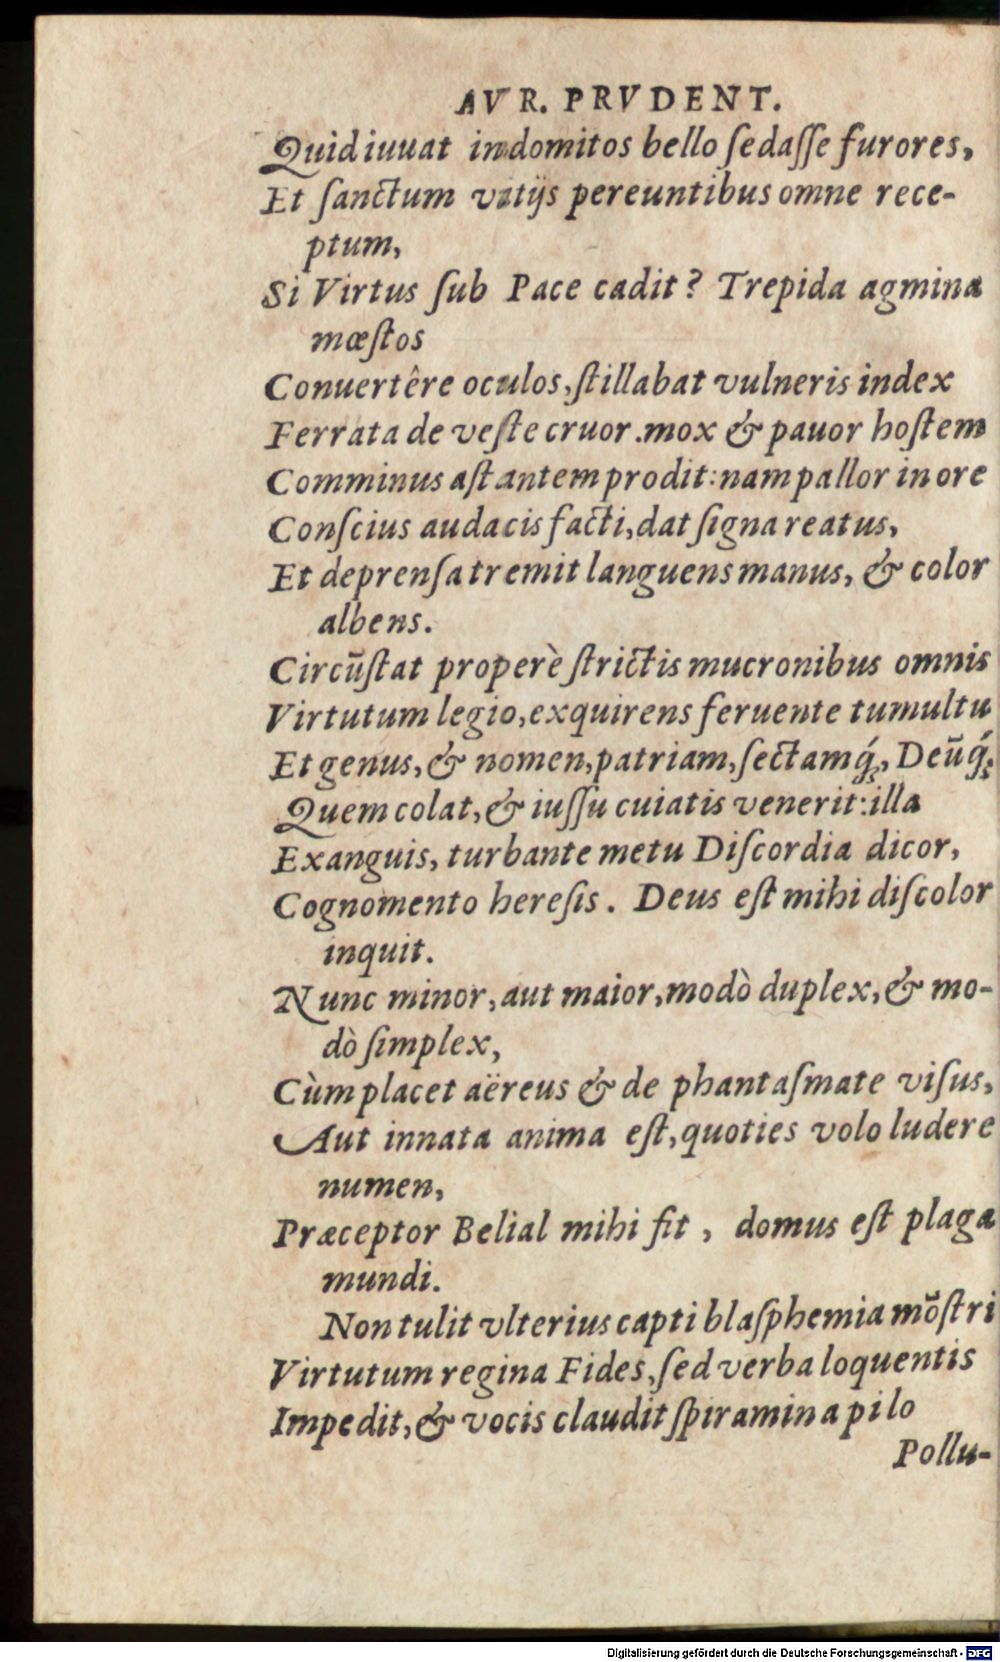 AVR. PRVDENT.
Quid iuuat indomitos bello ſedaſſe furores,
Et ſanctum vitijs pereuntibus omne rece-
ptum,
Si Virtus ſub Pace cadit? Trepida agmina
mœſtos
Conuertêre oculos, ſtillabat vulneris index
Ferrata de veſte cruor. mox & pauor hoſtem
Comminus aſtantem prodit: nam pallor in ore
Conſcius audacis facti, dat ſigna reatus,
Et deprenſa tremit languens manus, & color
albens.
Circūſtat properè ſtrictis mucronibus omnis
Virtutum legio, exquirens feruente tumultu
Et genus, & nomen, patriam, ſectamq́;, Deūq́;
Quem colat, & iuſſu cuiatis venerit: illa
Exanguis, turbante metu Diſcordia dicor,
Cognomento hereſis. Deus eſt mihi diſcolor
inquit.
Nunc minor, aut maior, modò duplex, & mo-
dò ſimplex,
Cùm placet aëreus & de phantaſmate viſus,
Aut innata anima eſt, quoties volo ludere
numen,
Præceptor Belial mihi fit, domus eſt plaga
mundi.
Non tulit vlterius capti blaſphemia mōſtri
Virtutum regina Fides, ſed verba loquentis
Impedit, & vocis claudit ſpiramina pilo
Pollu-
Digitalisierung gefördert durch die Deutsche Forschungsgemeinschaft - DFG